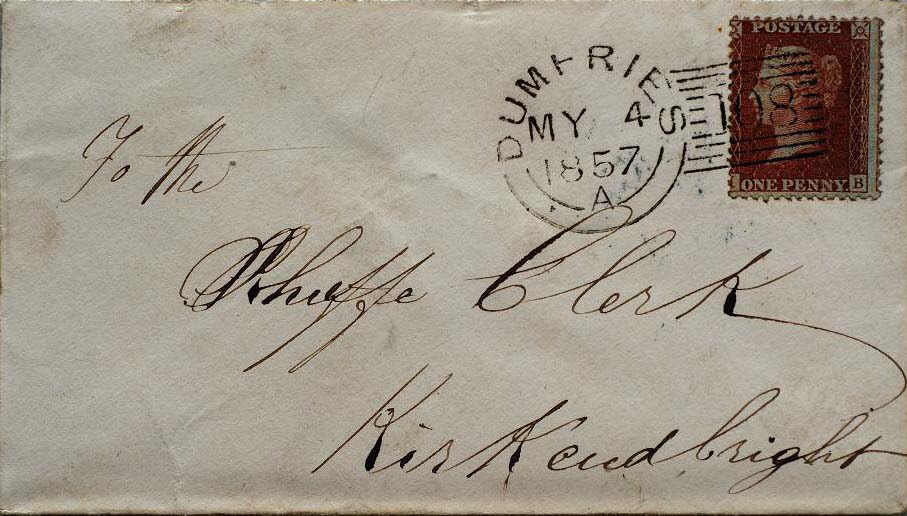 POSTAGE
DUMFRIES
MY 4
1857
A
108
ONE PENNY B
To the
Shuffe Clerk
Kirkcudbright